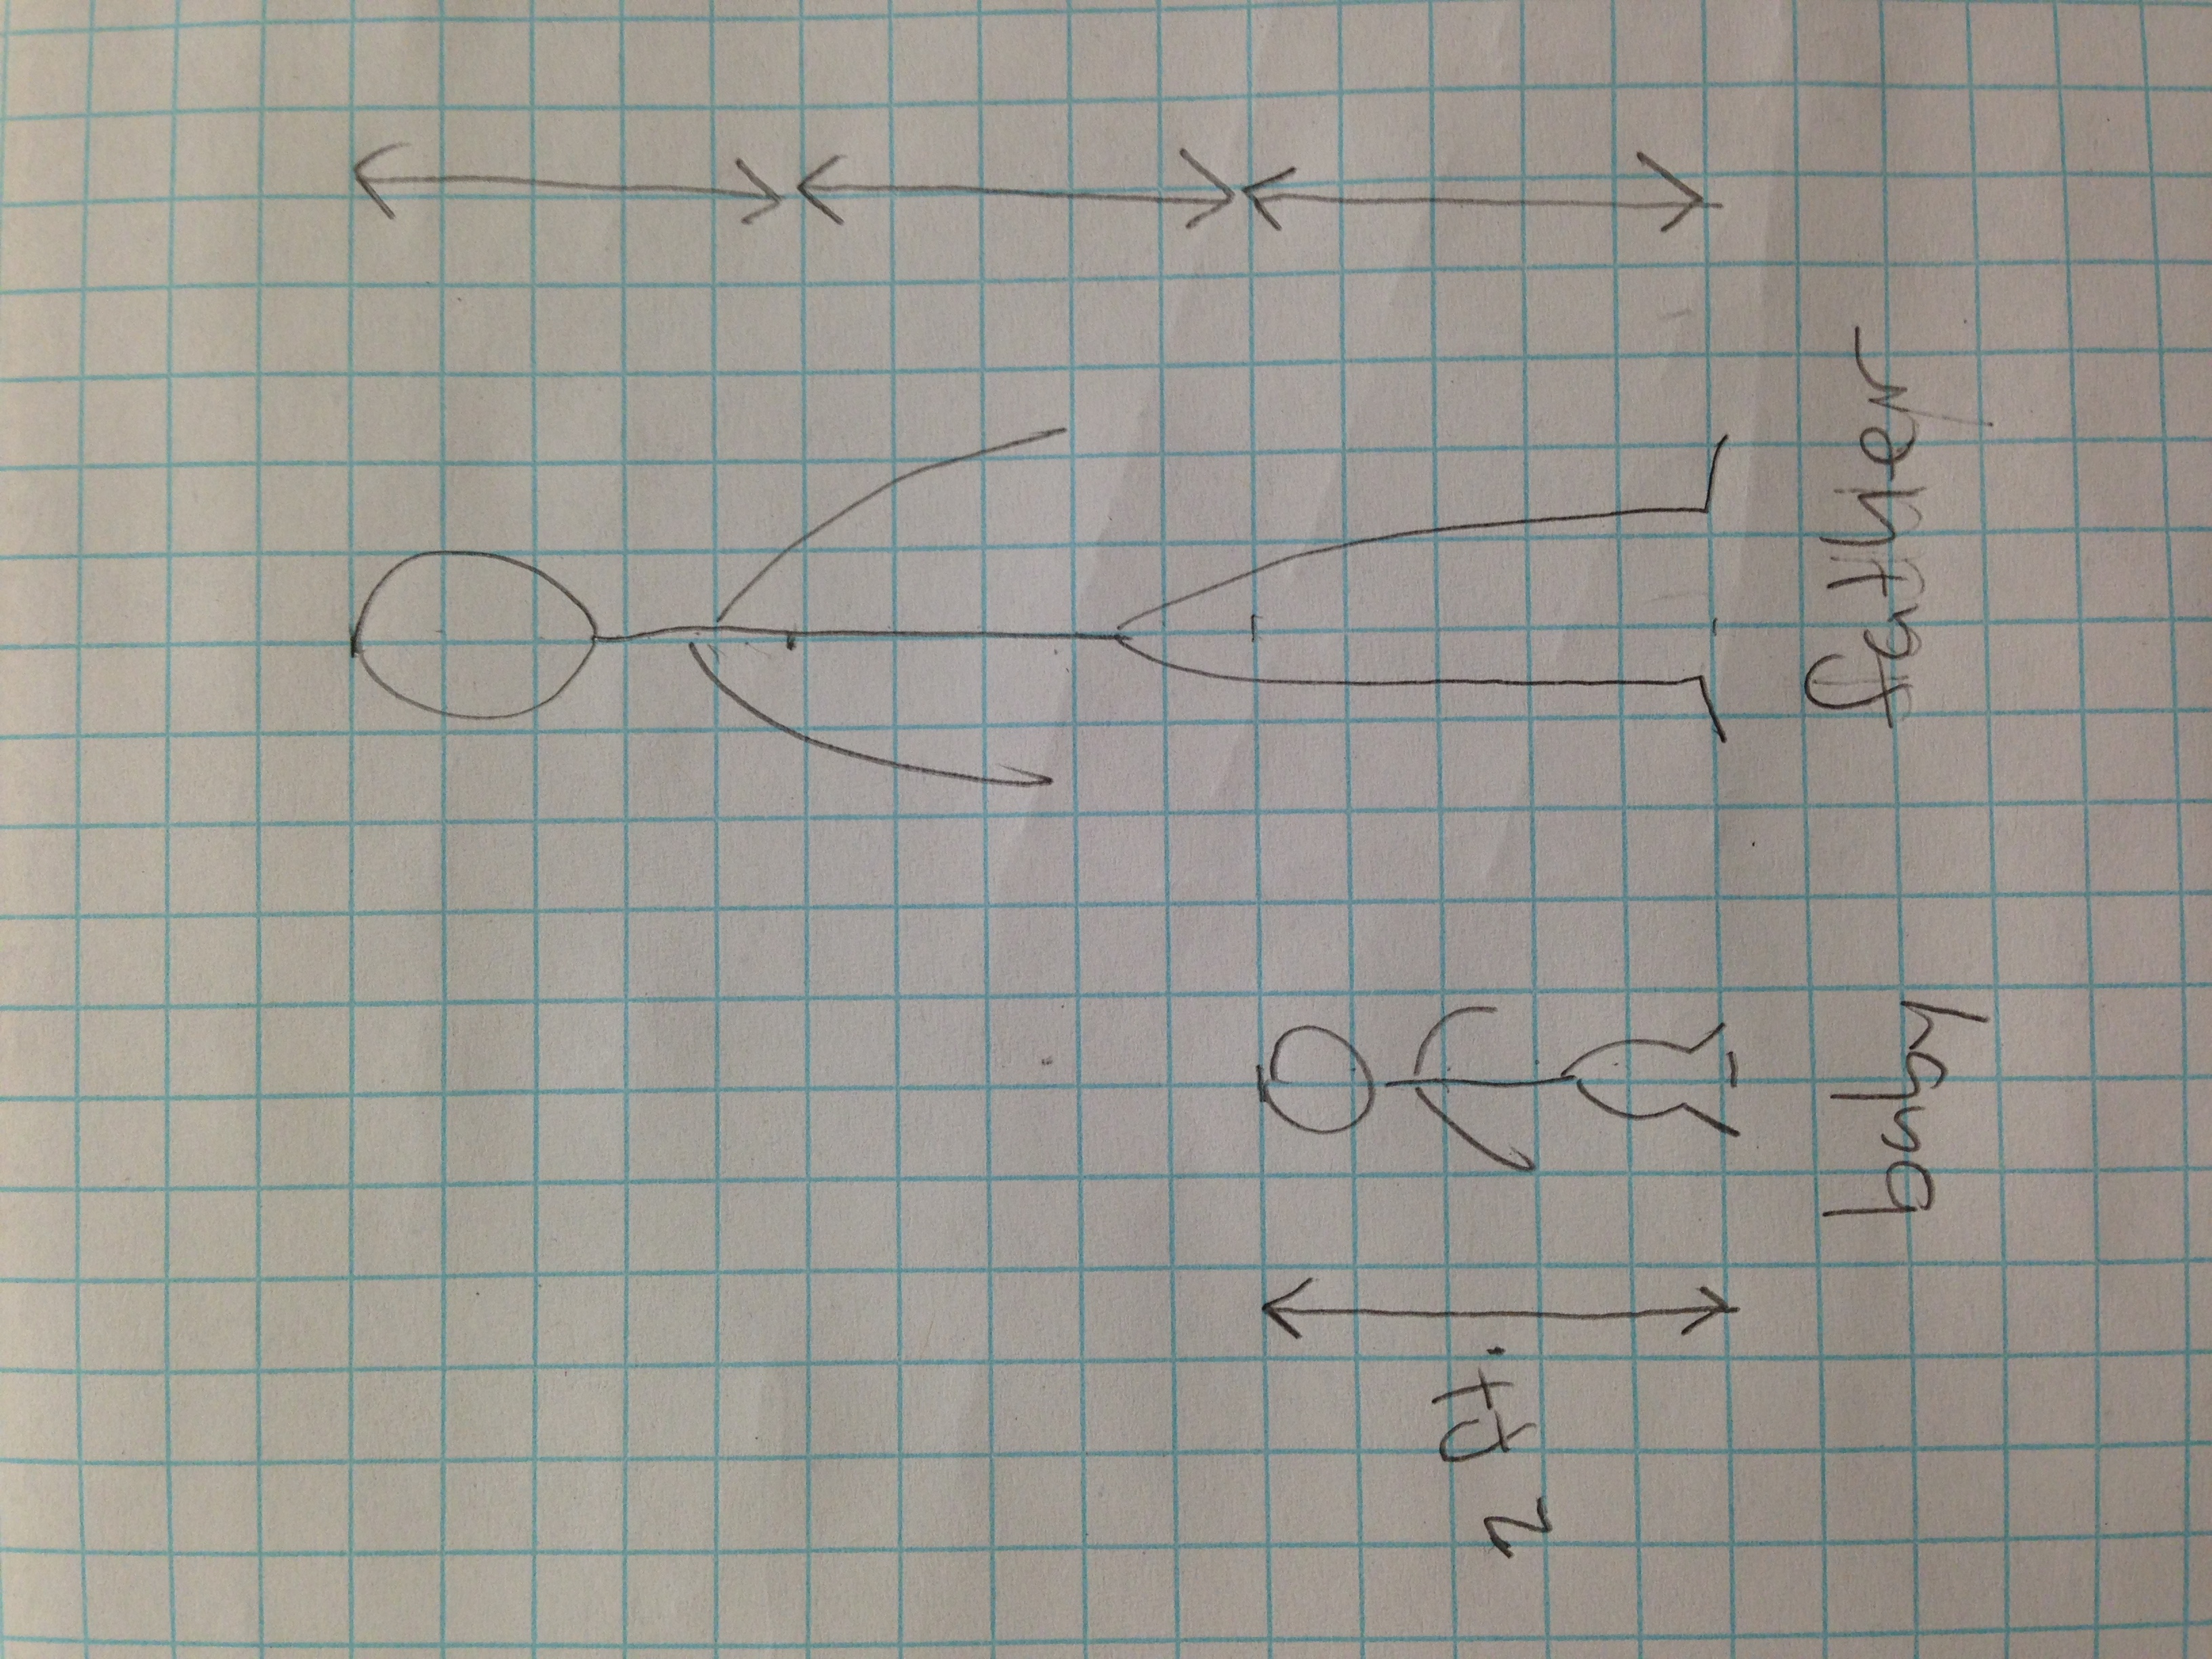 2 ft.
baby
father